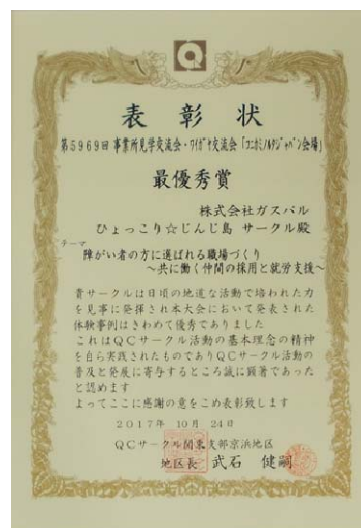 Q
表彰状
第5969回 事業所見学交流会・ワイガヤ交流会「コニカミノルタジャパン会場」
最優秀賞
株式会社ガスパル
ひょっこり☆じんじ島 サークル殿
テーマ
障がい者の方に選ばれる職場づくり
～共に働く仲間の採用と就労支援～
貴サークルは日頃の地道な活動で培われた力
を見事に発揮され本大会において発表された
体験事例はきわめて優秀でありました
これはQCサークル活動の基本理念の精神
を自ら実践されたものでありQCサークル活動の
普及と発展に寄与するところ誠に顕著であった
と認めます
よってここに感謝の意をこめ表彰致します
2017年 10月 24日
QCサークル関東支部京浜地区
地区長 武石 健嗣